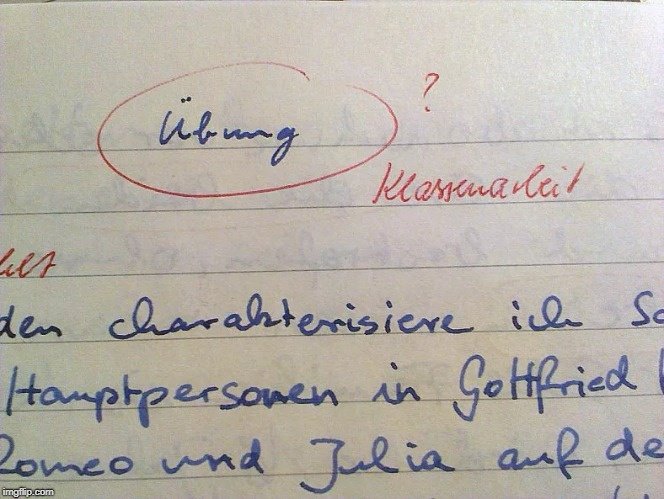 Übung ?
Klassenarbeit
den charakterisiere ich
Hauptpersonen in Gottfried
Romeo und Julia auf de
imgflip.com